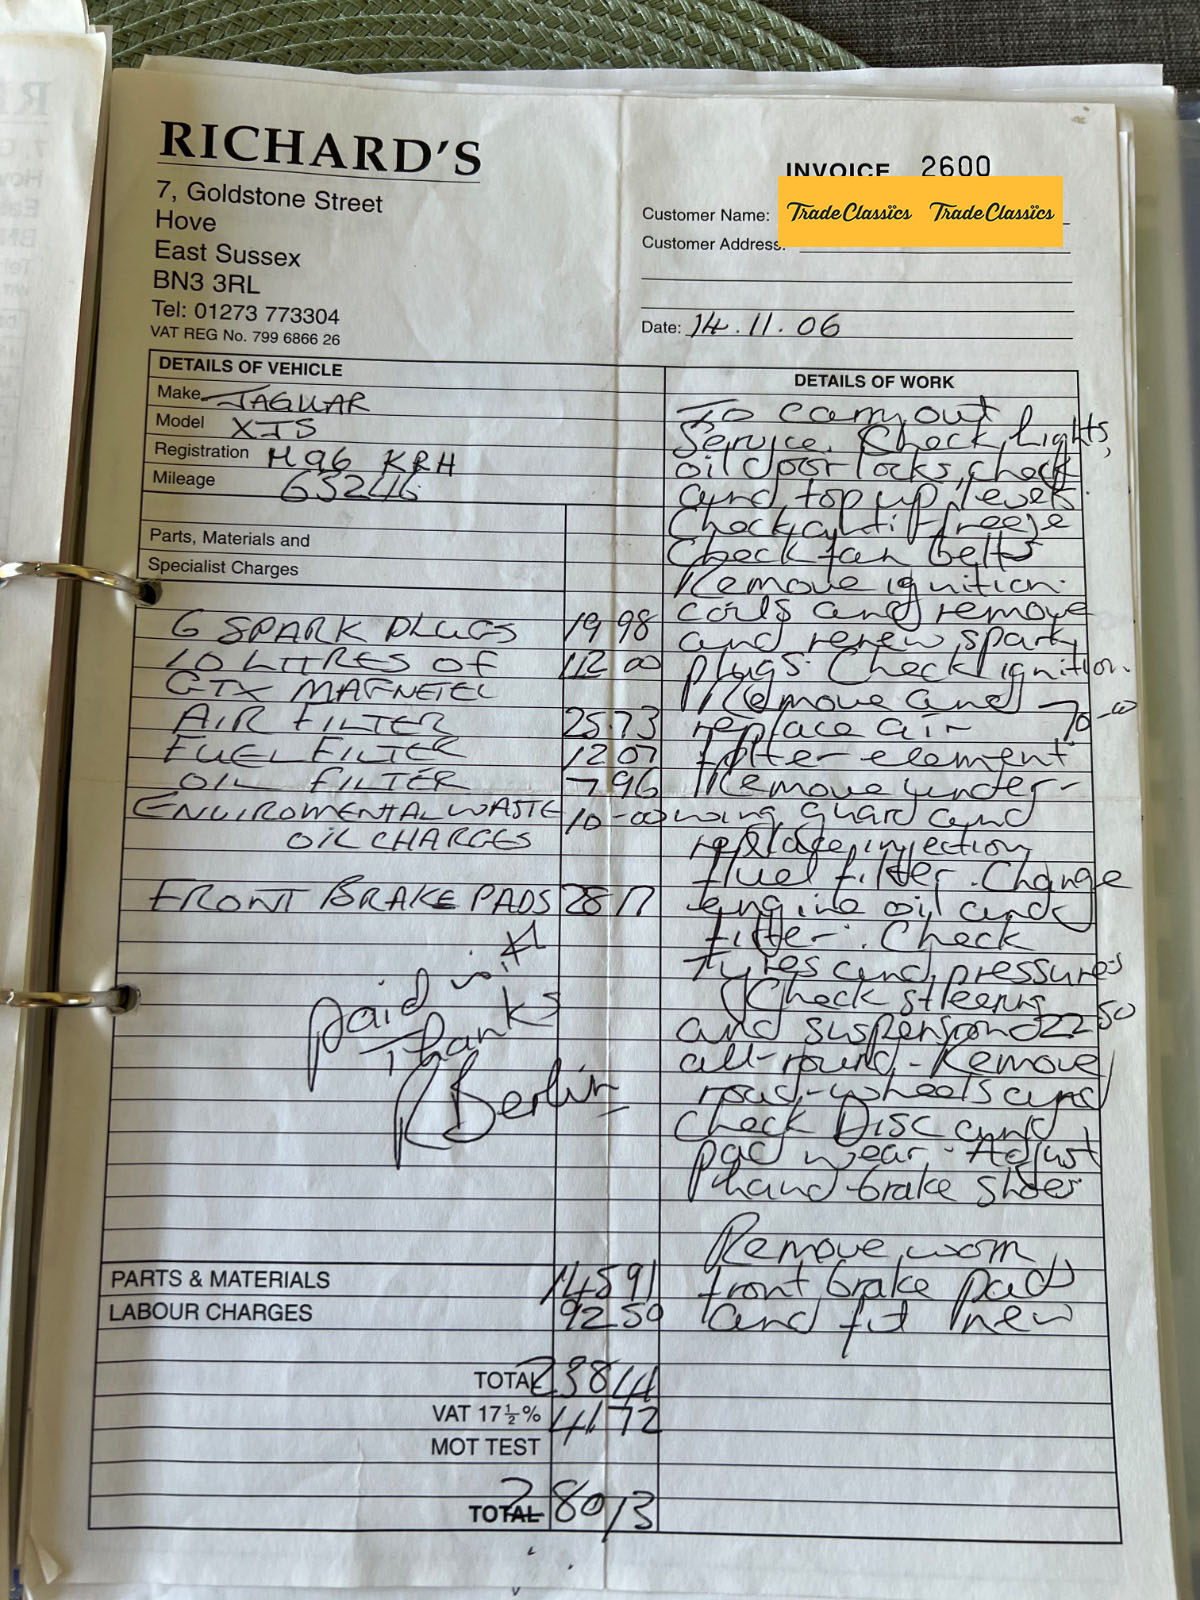 RICHARD'S
7, Goldstone Street
Hove
East Sussex
BN3 3RL
Tel: 01273 773304
VAT REG No. 799 6866 26
INVOICE 2600
Customer Name: TradeClassics TradeClassics
Customer Address:
Date: 14.11.06
DETAILS OF VEHICLE
Make JAGUAR
Model XJS
Registration M96 KRH
Mileage 65246
Parts, Materials and
Specialist Charges
6 SPARK PLUGS 19 98
10 LITRES OF 42 00
GTX MAGNETEC
AIR FILTER 25.73
FUEL FILTER 12 07
OIL FILTER 7 96
ENVIROMENTAL WASTE 10-00
OIL CHARGES
FRONT BRAKE PADS 28 17
paid in
Thanks
R Berlin
PARTS & MATERIALS 145 91
LABOUR CHARGES 92 50
TOTAL 238 41
VAT 17 ½ % 41 72
MOT TEST
TOTAL 280 13
DETAILS OF WORK
To carry out
Service. Check lights,
oil door locks, check
and top up levels.
Check antifreeze
Check fan belts
Remove ignition
coils and remove
and renew spark
plugs. Check ignition.
Remove and 70-00
replace air
filter element
Remove under-
wing guard and
replace injection
fuel filter. Change
engine oil and
filter. Check
tyres and pressures
Check steering
and suspension 22 50
all-round. Remove
road-wheels and
check Disc and
pad wear. Adjust
hand-brake shoes
Remove worn
front brake pads
and fit new